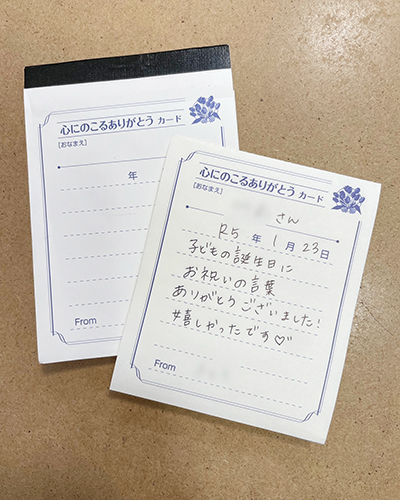 心にのこるありがとう カード
[おなまえ]
年
From
心にのこるありがとう カード
[おなまえ]
さん
R5 年 1 月 23 日
子どもの誕生日に
お祝いの言葉
ありがとうございました!
嬉しかったです♡
From